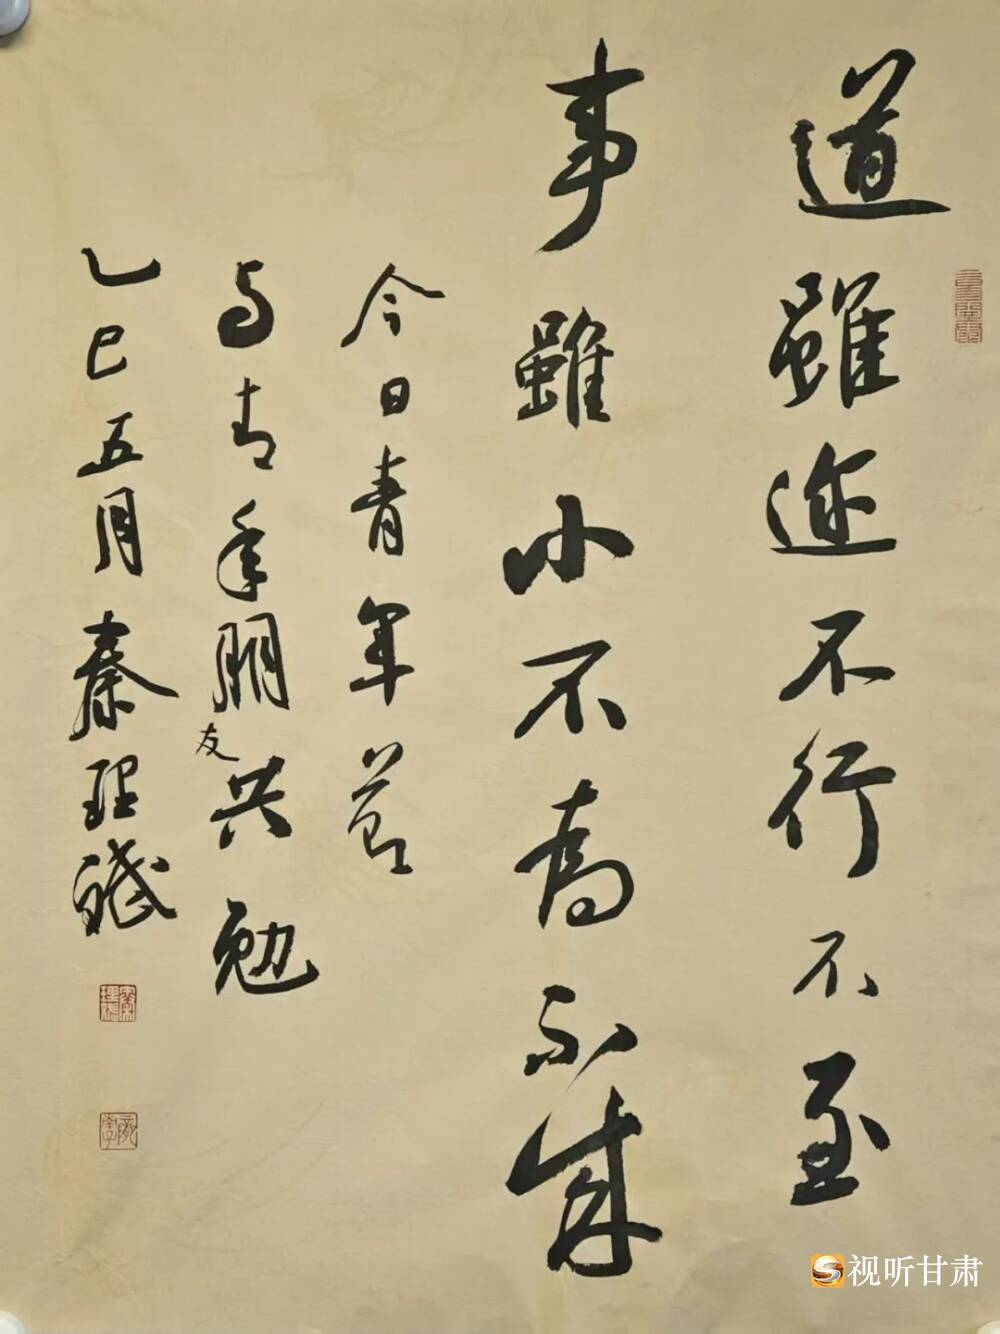 道雖迩不行不至
事雖小不為不成
今日青年节
与青年朋友共勉
乙巳五月秦理斌
视听甘肃